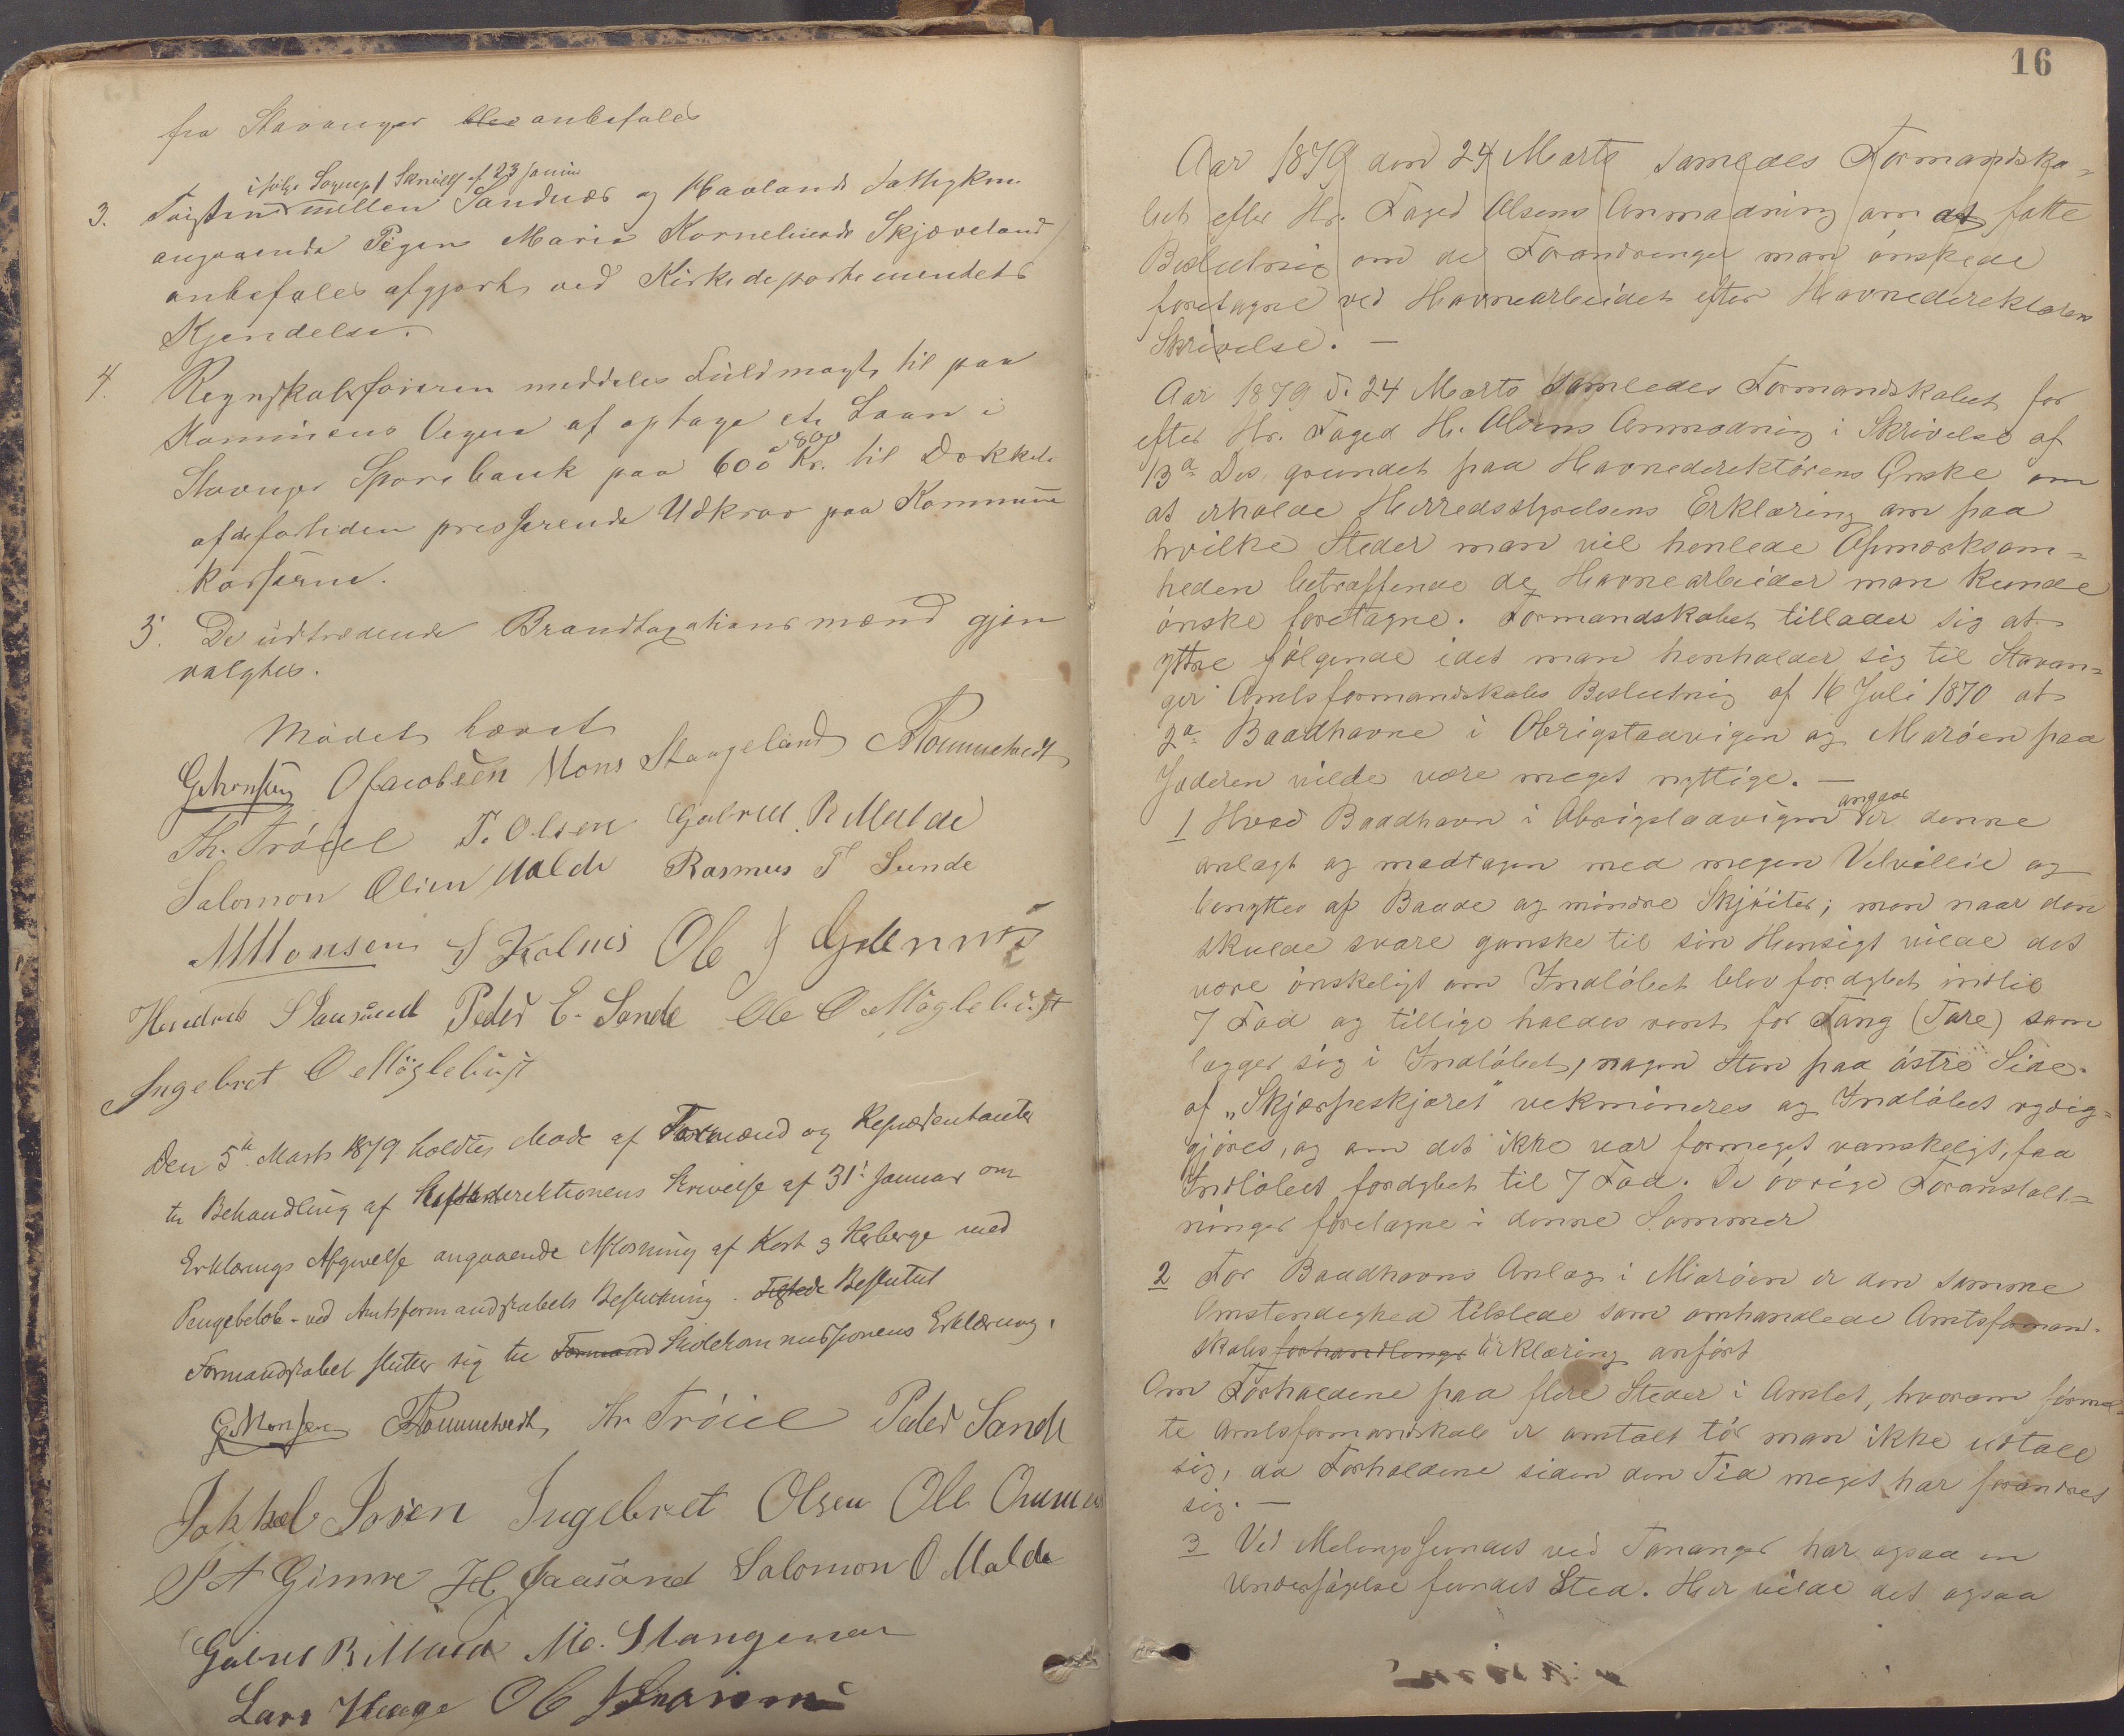 fra Stavanger blev anbefales
ifølge Sognep. Skrivelse af 23 Januar
3. Tvisten mellem Sandnæs og Haalands Fattigkm.
angaaende Pigen Maria Korneliusdr Skjæveland
anbefales afgjort ved Kirkedepartementets
Kjendelse.
4. Regnskabsføreren meddeles Fuldmagt til paa
Kommunens Vegne at optage et Laan i
800
Stavanger Sparebank paa 600 Kr. til Dækkelse
af de fortiden presserende Udkrav paa Kommune
kasserne.
5. De udtrædende Brandtaxationsmænd gjen
valgtes.
Mødet hævet
G Monsen O Jacobsen Mons Stangeland Tommetvedt
Th. Tröiel T. Olsen Gabriel R Malde
Salomon Olsen Malde Rasmus T Sunde
M Monsen S Kolnes Ole J Grannes
Hendrik Jaasund Peder E. Sande Ole O Møglebust
Ingebret O Møglebust
Den 5te Marts 1879 holdtes Møde af Formænd og Repræsentanter
til Behandling af Skoledirektionens Skrivelse af 31te Januar om
Erklærings Afgivelse angaaende Afløsning af Kost og Herberge med
Pengebeløb – ved Amtsformandskabets Beslutning. Beslutet
Formandskabet slutter sig til Formand Skolekommissionens Erklæring.
G Monsen Tommetvedt Th Tröiel Peder Sande
Jakob Soven Ingebret Olsen Ole
P A Gimre H Jaasund Salomon O Malde
Gabriel R Malde Mo. Stangeland
Lars Hauge Ole J Grannes
16
Aar 1879 den 24 Marts samledes Formandska-
bet efter Hr. Foged Olsens Anmodning om at fatte
Beslutning om de Forandringer man ønskede
foretagne ved Havnearbeidet efter Havnedirektørens
Skrivelse. —
Aar 1879 d. 24 Marts samledes Formandskabet for
efter Hr. Foged H. Olsens Anmodning i Skrivelse af
13de Ds. grundet paa Havnedirektørens Ønske om
at erholde Herredsstyrelsens Erklæring om paa
hvilke Steder man vil henlede Opmærksom=
heden betræffende de Havnearbeider man kunde
ønske foretagne. Formandskabet tillader sig at
yttre følgende idet man henholder sig til Stavan=
ger Amtsformandskabs Beslutning af 16 Juli 1870 at
2de Baadhavne i Obrigstadvigen og Marøen paa
Jæderen vilde være meget nyttige. —
angaar
1 Hvad Baadhavn i Obrigstadvigen er denne
anlagt og modtagen med megen Velvillie og
benyttes af Baade og mindre Skjøiter; men naar den
skulde svare ganske til sin Hensigt vilde det
være ønskeligt om Indløbet blev fordybet indtil
7 Fod og tillige holdes rent for Tang (Tare) som
lægger sig i Indløbet, nogen Sten paa østre Side
af „Skjærpeskjæret" vekmineres og Indløbet rydig=
gjøres, og om det ikke var formeget vanskeligt, faa
Indløbet fordybet til 7 Fod. De øvrige Foranstalt=
ninger foretagne i denne Sommer
2 For Baadhavns Anlæg i Marøen er den samme
Omstendighed tilstede som omhandlede Amtsformand-
skabs forhandlings Erklæring anført
Om Forholdene paa flere Steder i Amtet, hvorom førnævn-
te Amtsformandskab er omtalt tør man ikke udtale
sig, da Forholdene siden den Tid meget har forandret
sig. —
3 Ved Melingssundet ved Tananger har ogsaa en
Undersøgelse fundet Sted. Her vilde det ogsaa